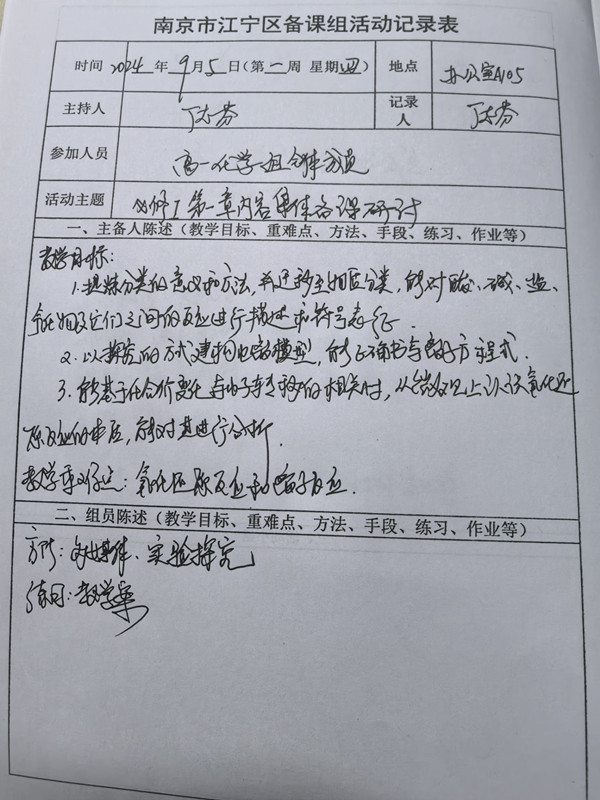 南京市江宁区备课组活动记录表
时间 2024 年 9 月 5 日（第 一 周 星期 四） 地点 办公室A105
主持人 丁大芬 记录人 丁大芬
参加人员 高一化学组全体成员
活动主题 必修1第一章内容集体备课研讨
一、主备人陈述（教学目标、重难点、方法、手段、练习、作业等）
教学目标：
1.提炼分类的意义和方法，并迁移至物质分类，能对酸、碱、盐、
氧化物及它们之间的反应进行描述和符号表征.
2.以探究的方式建构电离模型，能正确书写离子方程式.
3.能基于化合价变化与电子转移的相关性，从微观上认识氧化还
原反应的本质，能对其进行分析.
教学重难点：氧化还原反应和离子反应.
二、组员陈述（教学目标、重难点、方法、手段、练习、作业等）
方法：多媒体、实验探究
练习：教学案